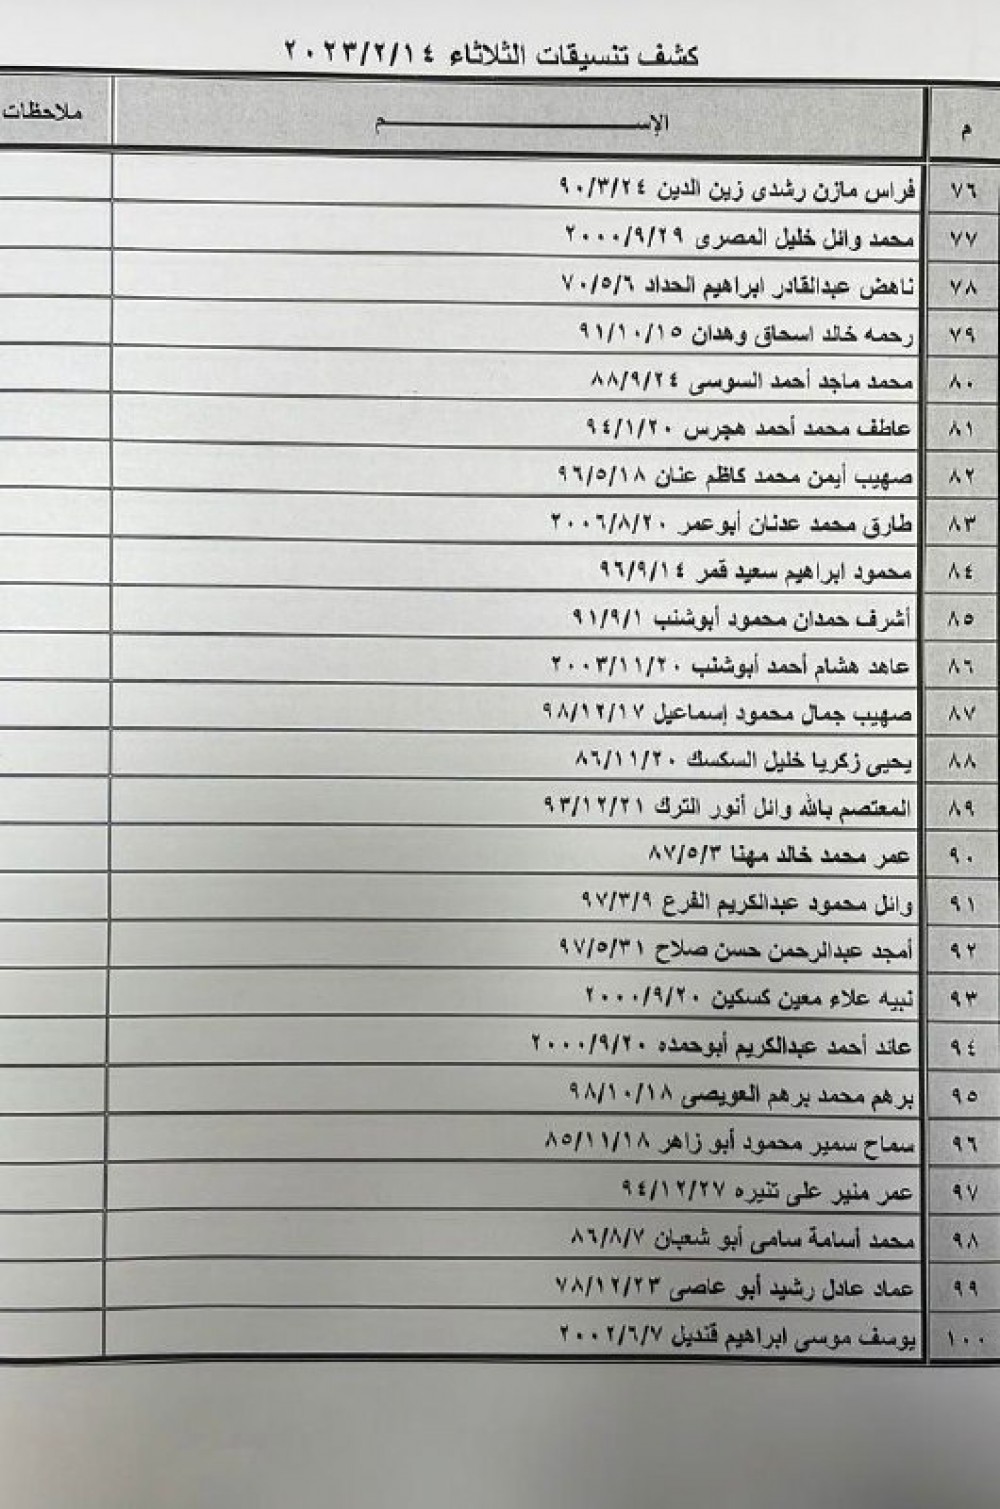 كشف تنسيقات الثلاثاء ٢٠٢٣/٢/١٤
م الإســـــــم ملاحظات
٧٦ فراس مازن رشدى زين الدين ٩٠/٣/٢٤
٧٧ محمد وائل خليل المصرى ٢٠٠٠/٩/٢٩
٧٨ ناهض عبدالقادر ابراهيم الحداد ٧٠/٥/٦
٧٩ رحمه خالد اسحاق وهدان ٩١/١٠/١٥
٨٠ محمد ماجد أحمد السوسى ٨٨/٩/٢٤
٨١ عاطف محمد أحمد هجرس ٩٤/١/٢٠
٨٢ صهيب أيمن محمد كاظم عنان ٩٦/٥/١٨
٨٣ طارق محمد عدنان أبوعمر ٢٠٠٦/٨/٢٠
٨٤ محمود ابراهيم سعيد قمر ٩٦/٩/١٤
٨٥ أشرف حمدان محمود أبوشنب ٩١/٩/١
٨٦ عاهد هشام أحمد أبوشنب ٢٠٠٣/١١/٢٠
٨٧ صهيب جمال محمود إسماعيل ٩٨/١٢/١٧
٨٨ يحيى زكريا خليل السكسك ٨٦/١١/٢٠
٨٩ المعتصم بالله وائل أنور الترك ٩٣/١٢/٢١
٩٠ عمر محمد خالد مهنا ٨٧/٥/٣
٩١ وائل محمود عبدالكريم القرع ٩٧/٣/٩
٩٢ أمجد عبدالرحمن حسن صلاح ٩٧/٥/٣١
٩٣ نبيه علاء معين كسكين ٢٠٠٠/٩/٢٠
٩٤ عائد أحمد عبدالكريم أبوحمده ٢٠٠٠/٩/٢٠
٩٥ برهم محمد برهم العويصى ٩٨/١٠/١٨
٩٦ سماح سمير محمود أبو زاهر ٨٥/١١/١٨
٩٧ عمر منير على تنيره ٩٤/١٢/٢٧
٩٨ محمد أسامة سامى أبو شعبان ٨٦/٨/٧
٩٩ عماد عادل رشيد أبو عاصى ٧٨/١٢/٢٣
١٠٠ يوسف موسى ابراهيم قنديل ٢٠٠٢/٦/٧